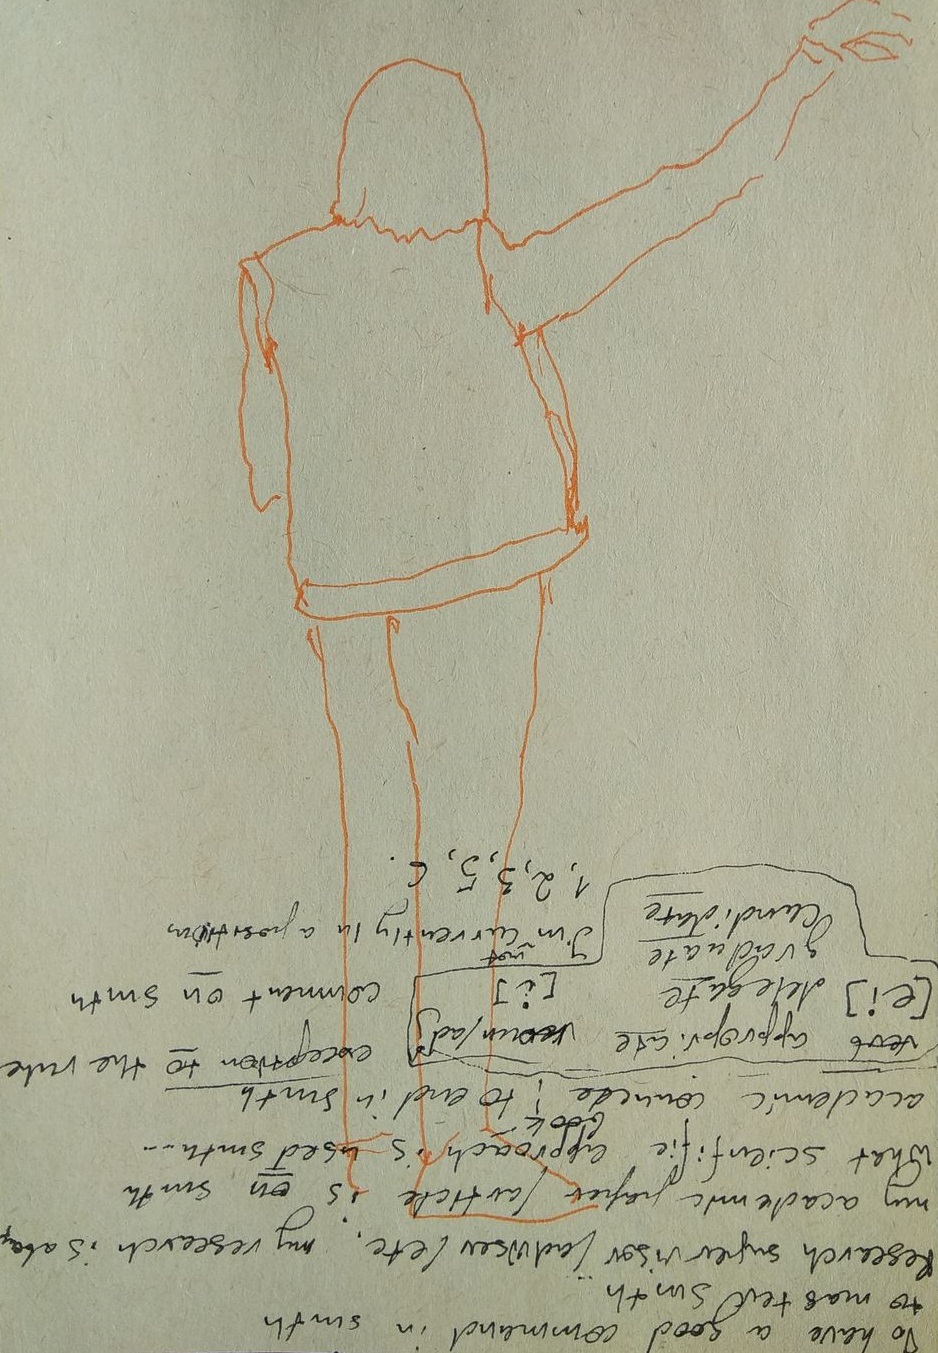 To have a good command in smth
to master smth
Research supervisor/adviser/etc, my research is abou
my academic paper/article is on smth
What scientific approach is used smth...
book
academic ; to end in smth
verb appropriate noun/adj exception to the rule
[ei] delegate [i] comment on smth
graduate I'm not currently in a position
candidate 1, 2, 3, 5, 6.